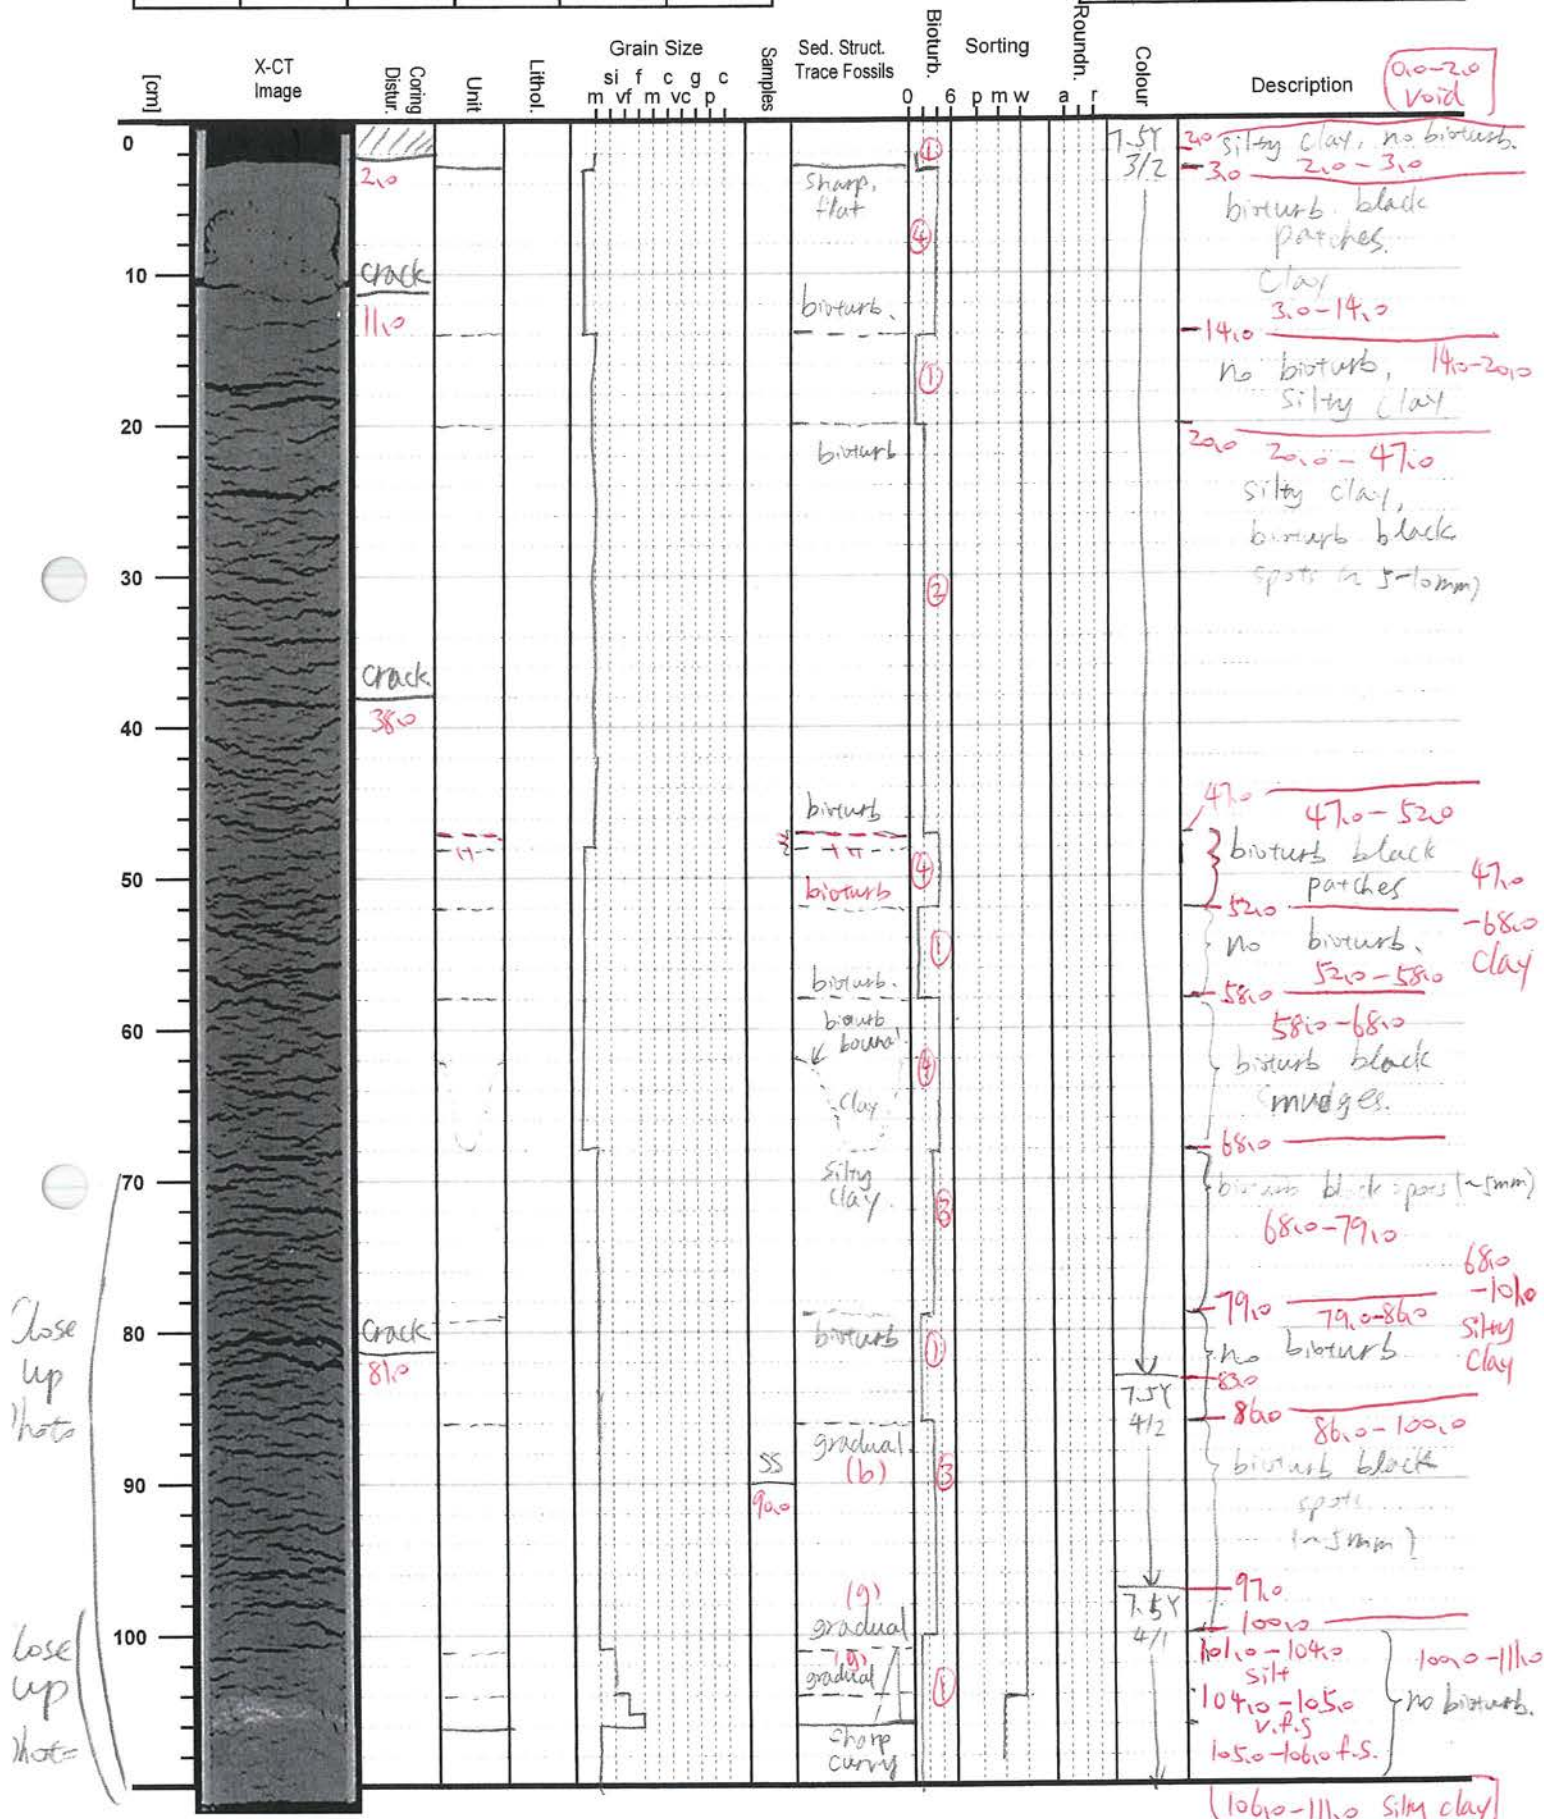 [cm]
X-CT
Image
Coring
Distur.
Unit
Lithol.
Grain Size
si f c g c
m vf m vc p
Samples
Sed. Struct.
Trace Fossils
Bioturb.
0 6
Sorting
p m w
Roundn.
a r
Colour
Description
0.0-2.0
void
0
10
20
30
40
50
60
70
80
90
100
2.0
crack
11.0
crack
38.0
crack
81.0
Close
up
Photo
Close
up
SS
90.0
sharp,
flat
bioturb.
bioturb
bioturb
bioturb
bioturb.
bioturb
clay
silty
clay
bioturb
gradual
(b)
(g)
gradual
(g)
gradual
sharp
curvy
1
4
1
2
4
1
4
3
1
3
1
7.5Y
3/2
7.5Y
4/2
7.5Y
4/1
2.0 silty clay, no bioturb.
3.0 2.0-3.0
bioturb. black
patches.
clay
3.0-14.0
14.0
no bioturb, 14.0-20.0
silty clay
20.0 20.0-47.0
silty clay,
bioturb black
spots (~5-10mm)
47.0
47.0-52.0
bioturb black
patches
47.0
-68.0
clay
52.0
no bioturb.
52.0-58.0
58.0
58.0-68.0
bioturb black
68.0
bioturb black spots (~5mm)
68.0-79.0
68.0
silty
clay
79.0 79.0-86.0
no bioturb
83.0
86.0
86.0-100.0
bioturb black
spots
(~5mm)
97.0
100.0
101.0-104.0
silt
104.0-105.0
v.f.s
105.0-106.0 f.s.
100.0-111.0
no bioturb.
(106.0-111.0 silty clay)